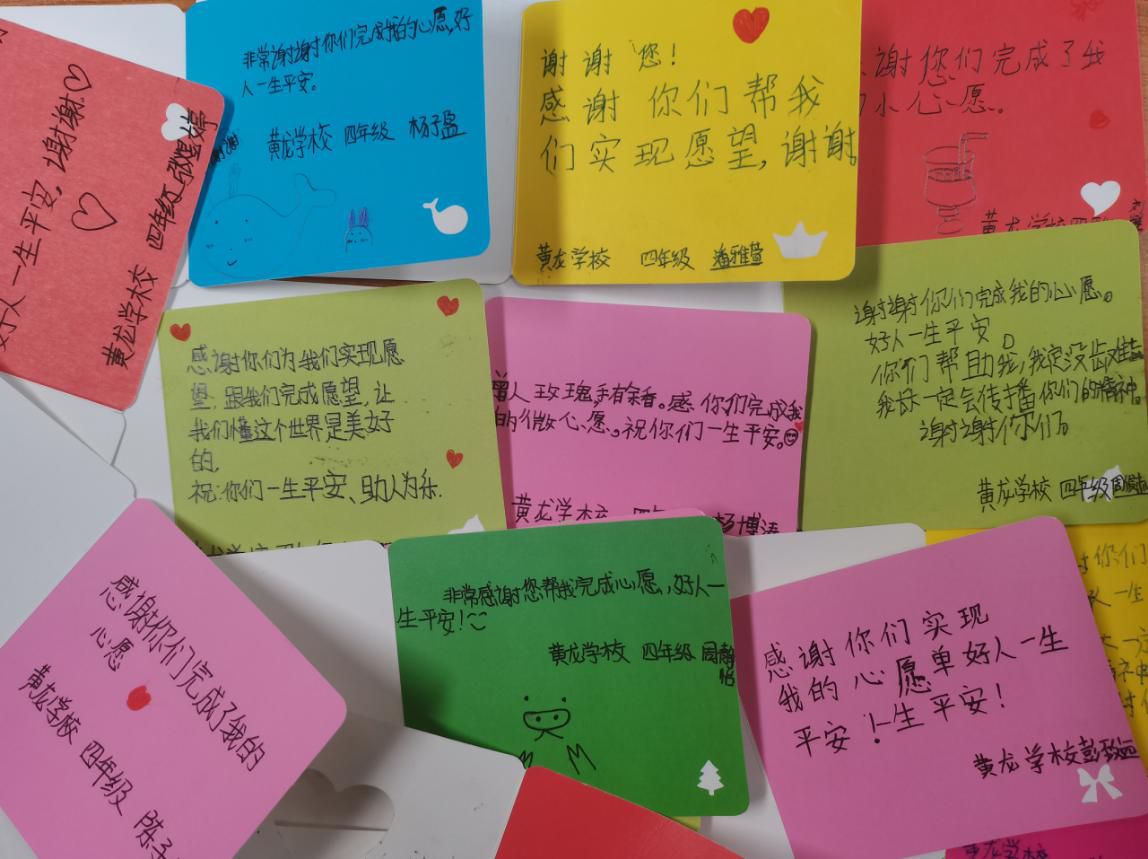 好人一生平安，谢谢
黄龙学校 四年级
非常谢谢你们完成我的心愿,好
人一生平安。
谢谢
黄龙学校 四年级 杨子盈
谢谢 您！
感谢 你们帮我
们实现愿望,谢谢
黄龙学校 四年级 潘雅萱
谢您们完成了我
小心愿。
黄龙学校四
感谢你们为我们实现愿
望,跟我们完成愿望,让
我们懂这个世界是美好
的,
祝:你们一生平安、助人为乐.
人玫瑰,手有余香。感 你们完成我
的微心愿。祝你们一生平安。
黄龙学校 四年级 杨博涛
谢谢你们完成我的心愿。
好人一生平安。
你们帮助我,我定没齿难
我一定会传播你们的精神。
谢谢你们。
黄龙学校 四年级
感谢你们完成了我的
心愿
黄龙学校 四年级 陈
非常感谢您帮我完成心愿,好人一
生平安!
黄龙学校 四年级 周静怡
感谢你们实现
我的心愿单好人一生
平安！一生平安！
黄龙学校彭
你们
人一生
黄龙学校